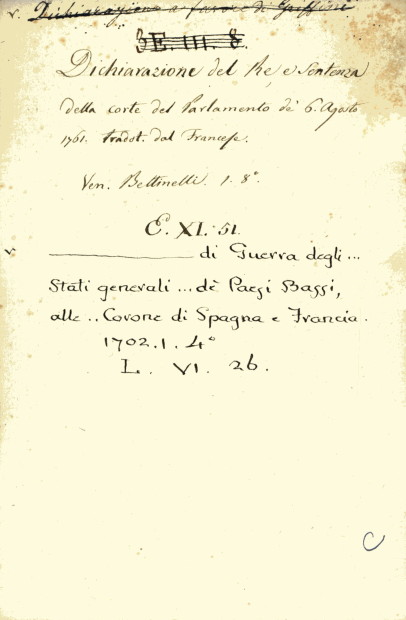 v. Dichiarazione a favore di Griffini
3E. III. 8.
Dichiarazione del Re, e Sentenza
della corte del Parlamento de' 6. Agosto
1761. tradot. dal Francese.
Ven. Bettinelli. 1. 8°.
E. XI. 51.
v ——— di Guerra degli...
Stati generali ... dè Paesi Bassi,
alle .. Corone di Spagna e Francia.
1702. 1. 4°
L. VI. 26.
C